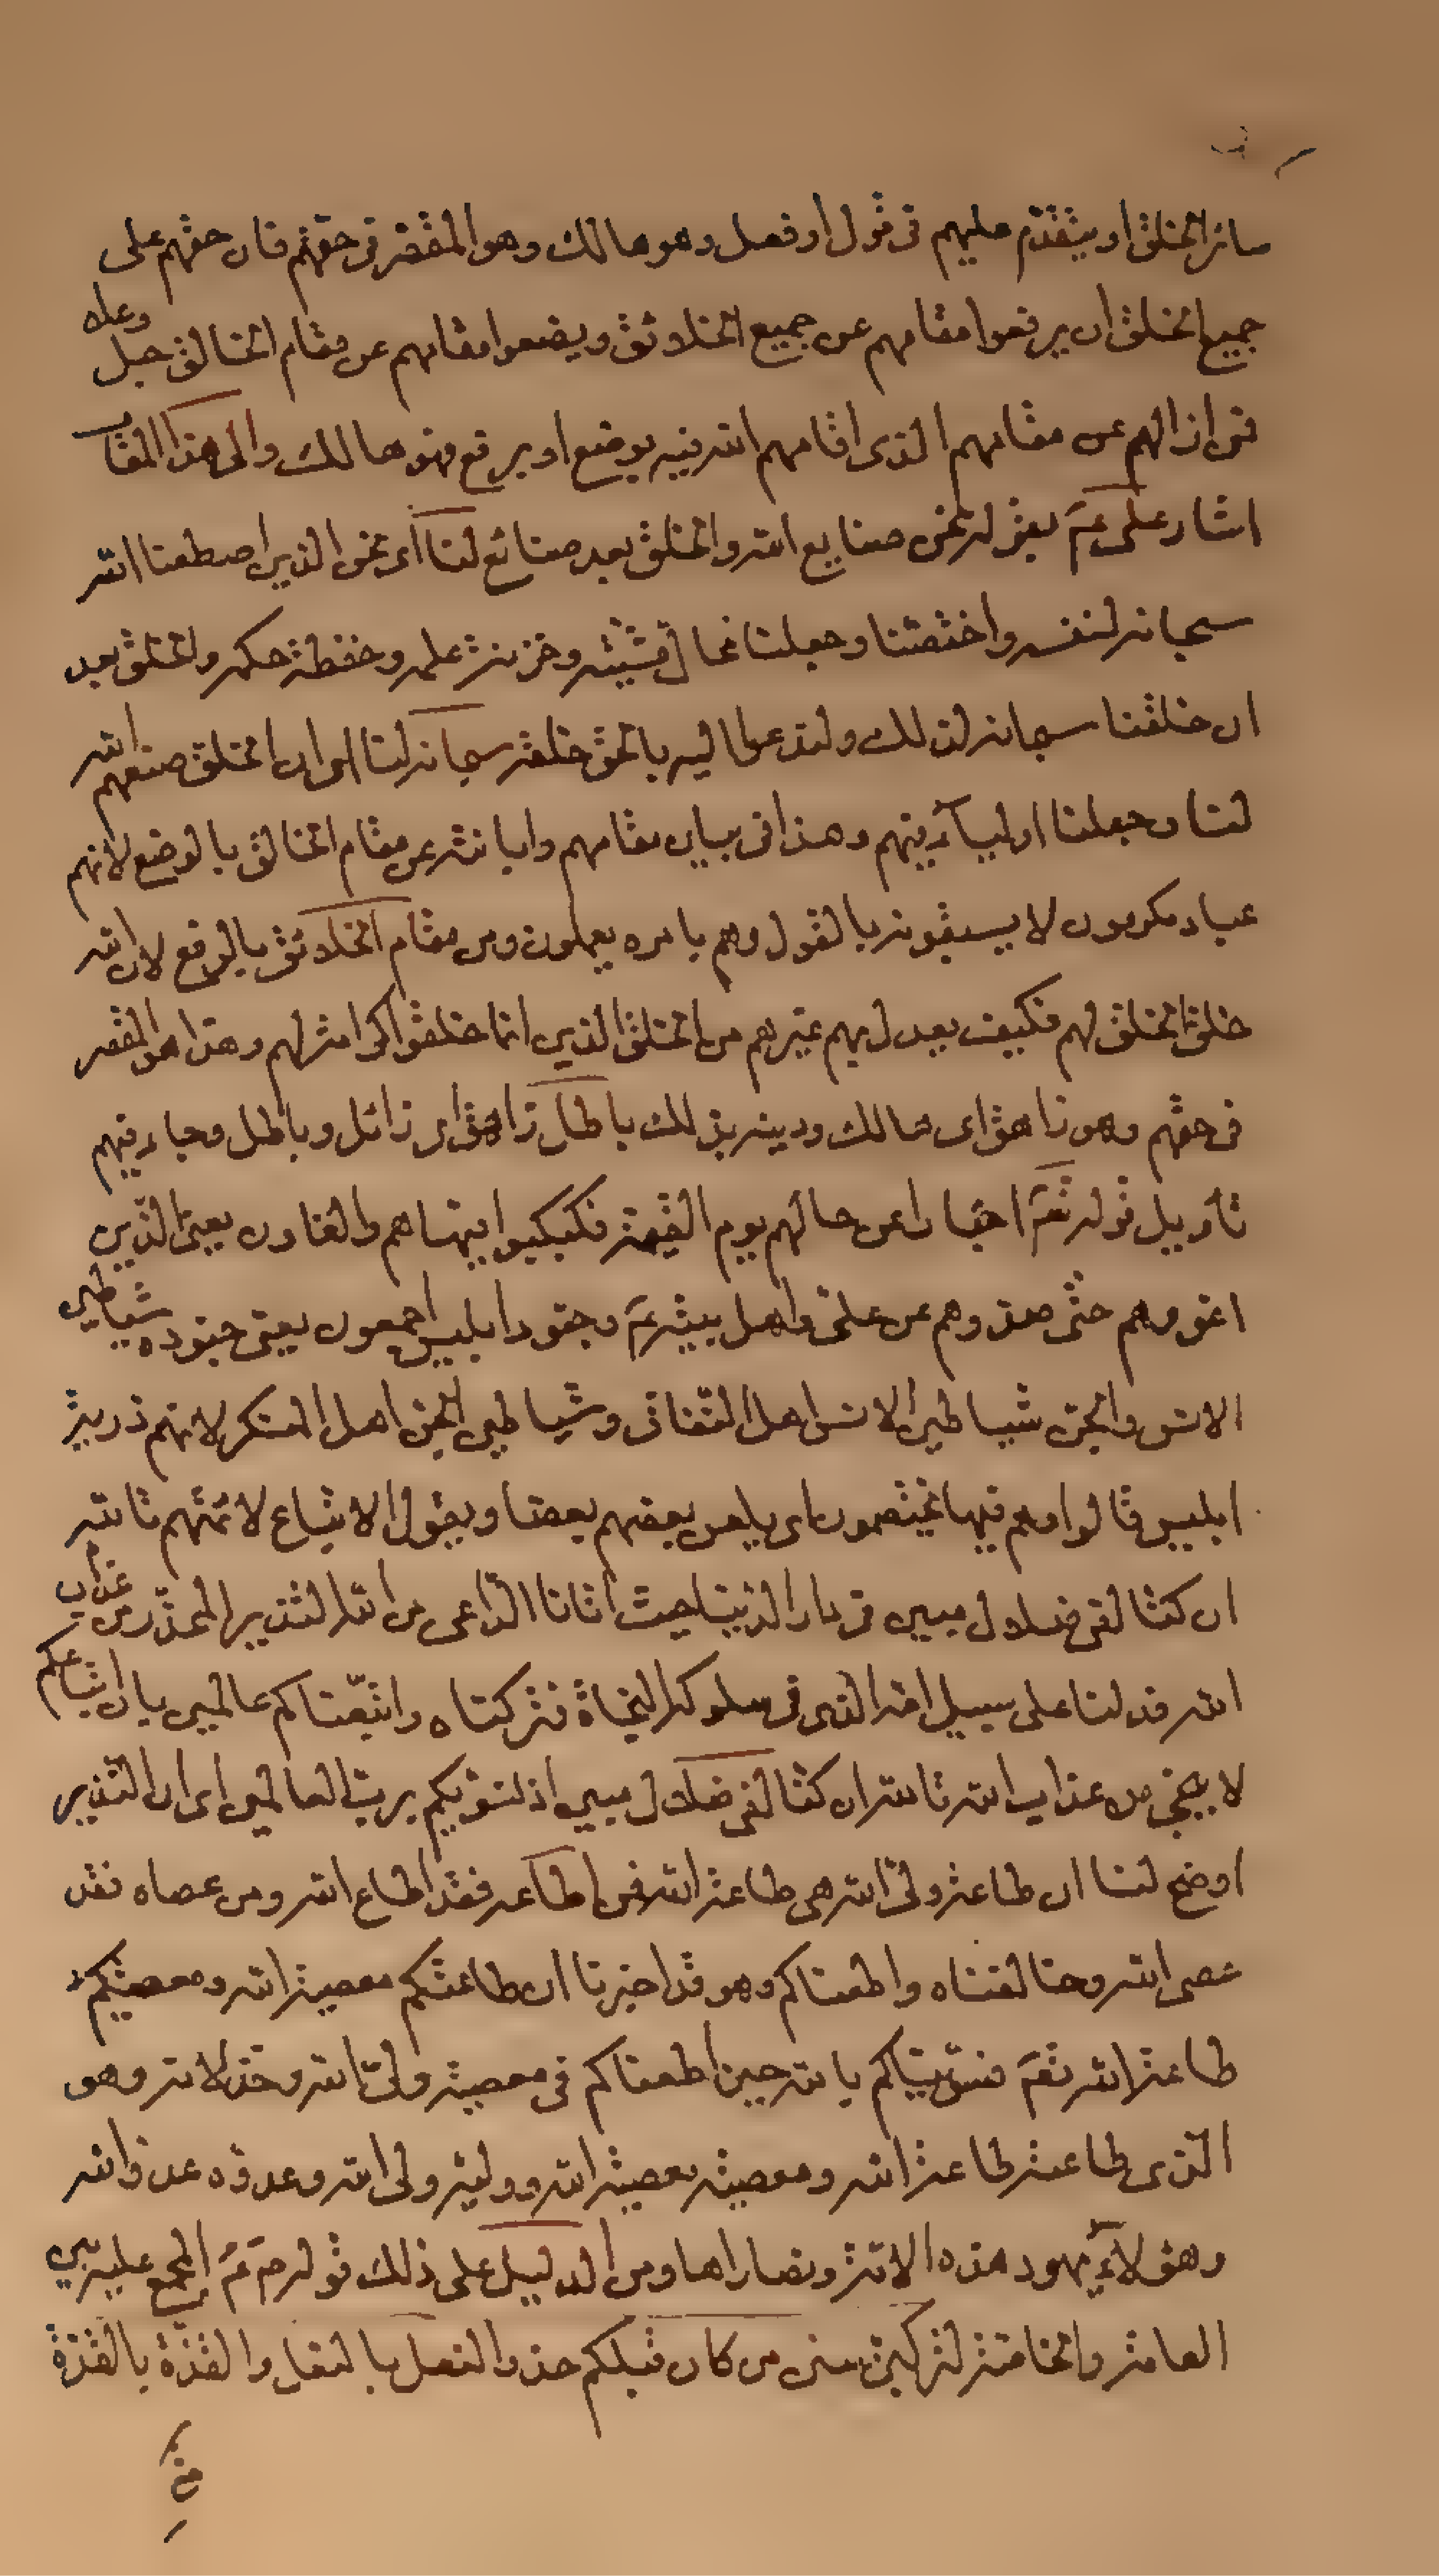 سائر الخلق او يتقدم عليهم في قول او فعل وهو هالك وهو المقصر في حقهم فان حقهم على
جميع الخلق ان يرفعوا مقامهم عن جميع الخلائق ويضعوا مقامهم عن مقام الخالق جل وعلا
فمن ازالهم عن مقامهم الذي اقامهم الله فيه بوضع او برفع فهو هالك والى هذا المقام
اشار علي عم بقوله نحن صنايع الله والخلق بعد صنائع لنا اى نحن الذين اصطنعنا الله
سبحانه لنفسه واختصنا وجعلنا محال مشيته وخزينة علمه وحفظة حكمه والخلق بعد
ان خلقنا سبحانه لذلك ولندعوا اليه بالحق خلقه سبحانه لنا اى ان الخلق صنعهم الله
لنا وجعلنا اولياء فيهم وهذا في بيان مقامهم وابانته عن مقام الخالق بالوضع لانهم
عباد مكرمون لا يسبقونه بالقول وهم بامره يعملون ومن مقام الخلائق بالرفع لان الله
خلق الخلق لهم فكيف يعدل بهم غيرهم من الخلق الذين انما خلقوا كرامة لهم وهذا هو المقصر
في حقهم وهو زاهق اى هالك ودينه بذلك باطل زاهق اى زائل وباطل وجاء فيهم
تأويل قوله تعم اخبارا عن حالهم يوم القيمة فكبكبوا فيها هم والغاون يعني الذين
اغووهم حتى صدوهم عن علي واهل بيته عم وجنود ابليس اجمعون يعني جنوده شياطين
الانس والجن شياطين الانس اهل النفاق وشياطين الجن اهل المنكر لانهم ذرية
ابليس قالوا وهم فيها يختصمون اى يلعن بعضهم بعضا ويقول الاتباع لائمتهم تالله
ان كنا لفي ضلال مبين في دار الدنيا حيث اتانا الداعي من الله النذير المحذر من عذاب
الله فدلنا على سبيل الله الذي في سلوكه النجاة فتركناه واتبعناكم عالمين بان اتباعكم
لا ينجي من عذاب الله تالله ان كنا لفي ضلال مبين اذ نسويكم برب العالمين اى ان النذير
اوضح لنا ان طاعة ولي الله هي طاعة الله فمن اطاعه فقد اطاع الله ومن عصاه فقد
عصى الله وخالفناه واطعناكم وهو قد اخبرنا ان طاعتكم معصية الله ومعصيتكم
طاعة الله تعم فسويناكم بالله حين اطعناكم في معصية ولي الله وخذلانه وهو
الذي طاعته طاعة الله ومعصيته معصية الله ووليه ولي الله وعدوه عدو الله
وهؤلاء يهود هذه الامة ونصاراها ومن الدليل على ذلك قوله صم المجمع عليه بين
العامة والخاصة لتركبن سنن من كان قبلكم حذو النعل بالنعل والقذة بالقذة